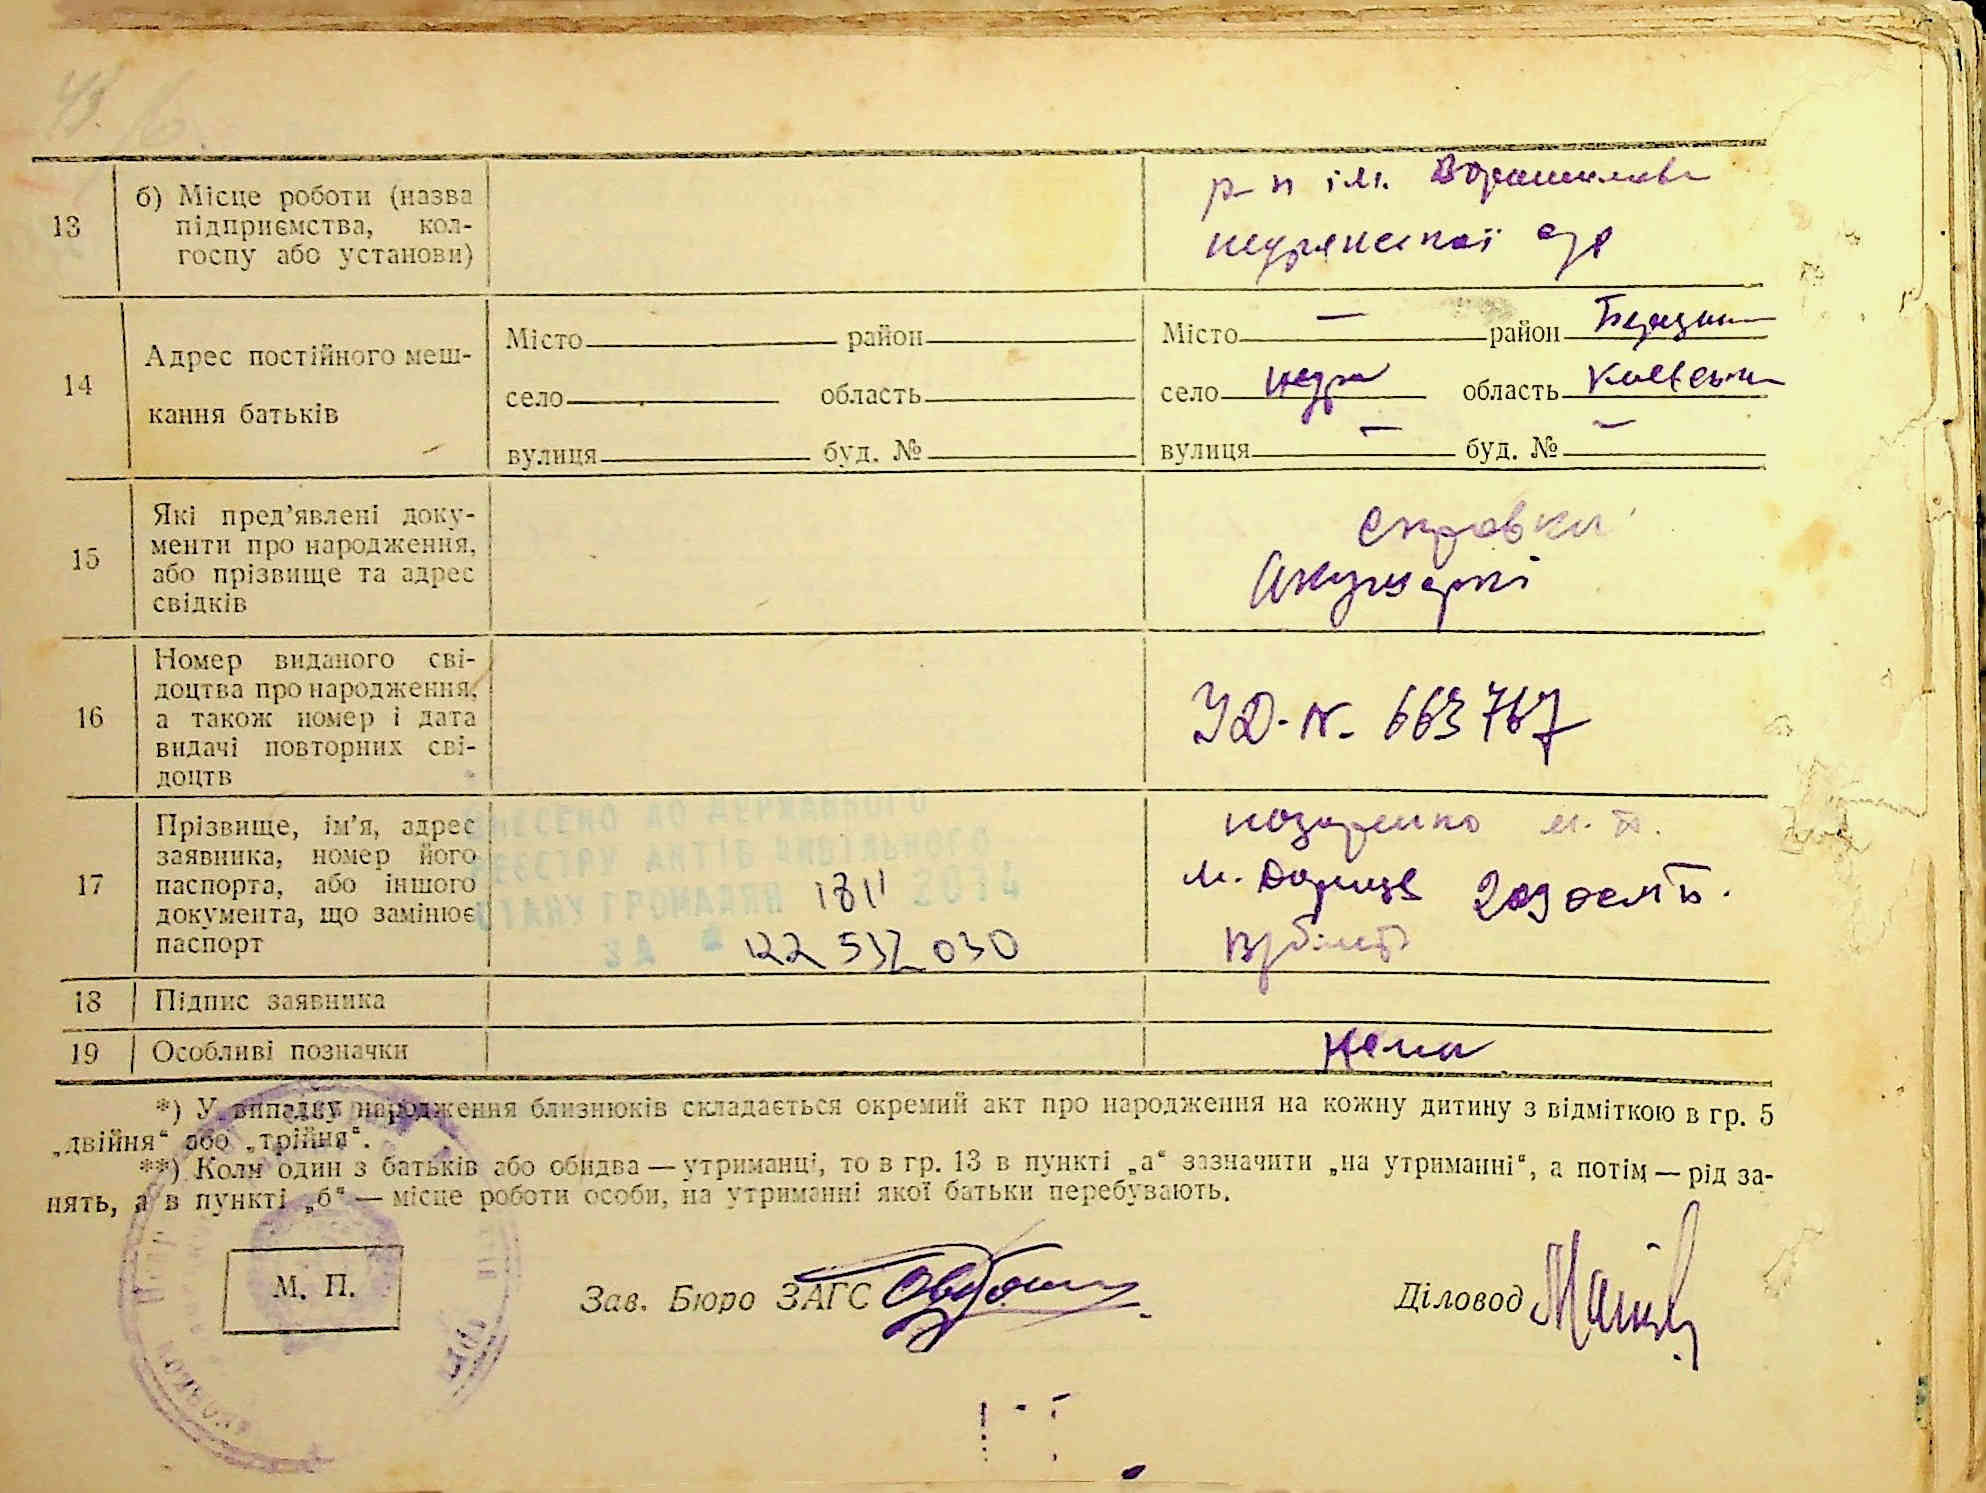 13
б) Місце роботи (назва
підприємства, кол-
госпу або установи)
р-п ім. Ворошилова
недрянської с/р
14
Адрес постійного меш-
кання батьків
Місто район
село область
вулиця буд. №
Місто — район
село Недра область Київська
вулиця — буд. № —
15
Які пред’явлені доку-
менти про народження,
або прізвище та адрес
свідків
справка
Акушеркі
16
Номер виданого сві-
доцтва про народження,
а також номер і дата
видачі повторних сві-
доцтв
УД-N. 663767
17
Прізвище, ім’я, адрес
заявника, номер його
паспорта, або іншого
документа, що замінює
паспорт
ВНЕСЕНО ДО ДЕРЖАВНОГО
РЕЄСТРУ АКТІВ ЦИВІЛЬНОГО
СТАНУ ГРОМАДЯН 1811 2014
ЗА
назаренко
м.
18
Підпис заявника
19
Особливі позначки
Нема
*) У випадку народження близнюків складається окремий акт про народження на кожну дитину з відміткою в гр. 5
„двійня“ або „трійня“.
**) Коли один з батьків або обидва — утриманці, то в гр. 13 в пункті „а“ зазначити „на утриманні“, а потім — рід за-
нять, а в пункті „б“ — місце роботи особи, на утриманні якої батьки перебувають.
М. П.
Зав. Бюро ЗАГС
Діловод